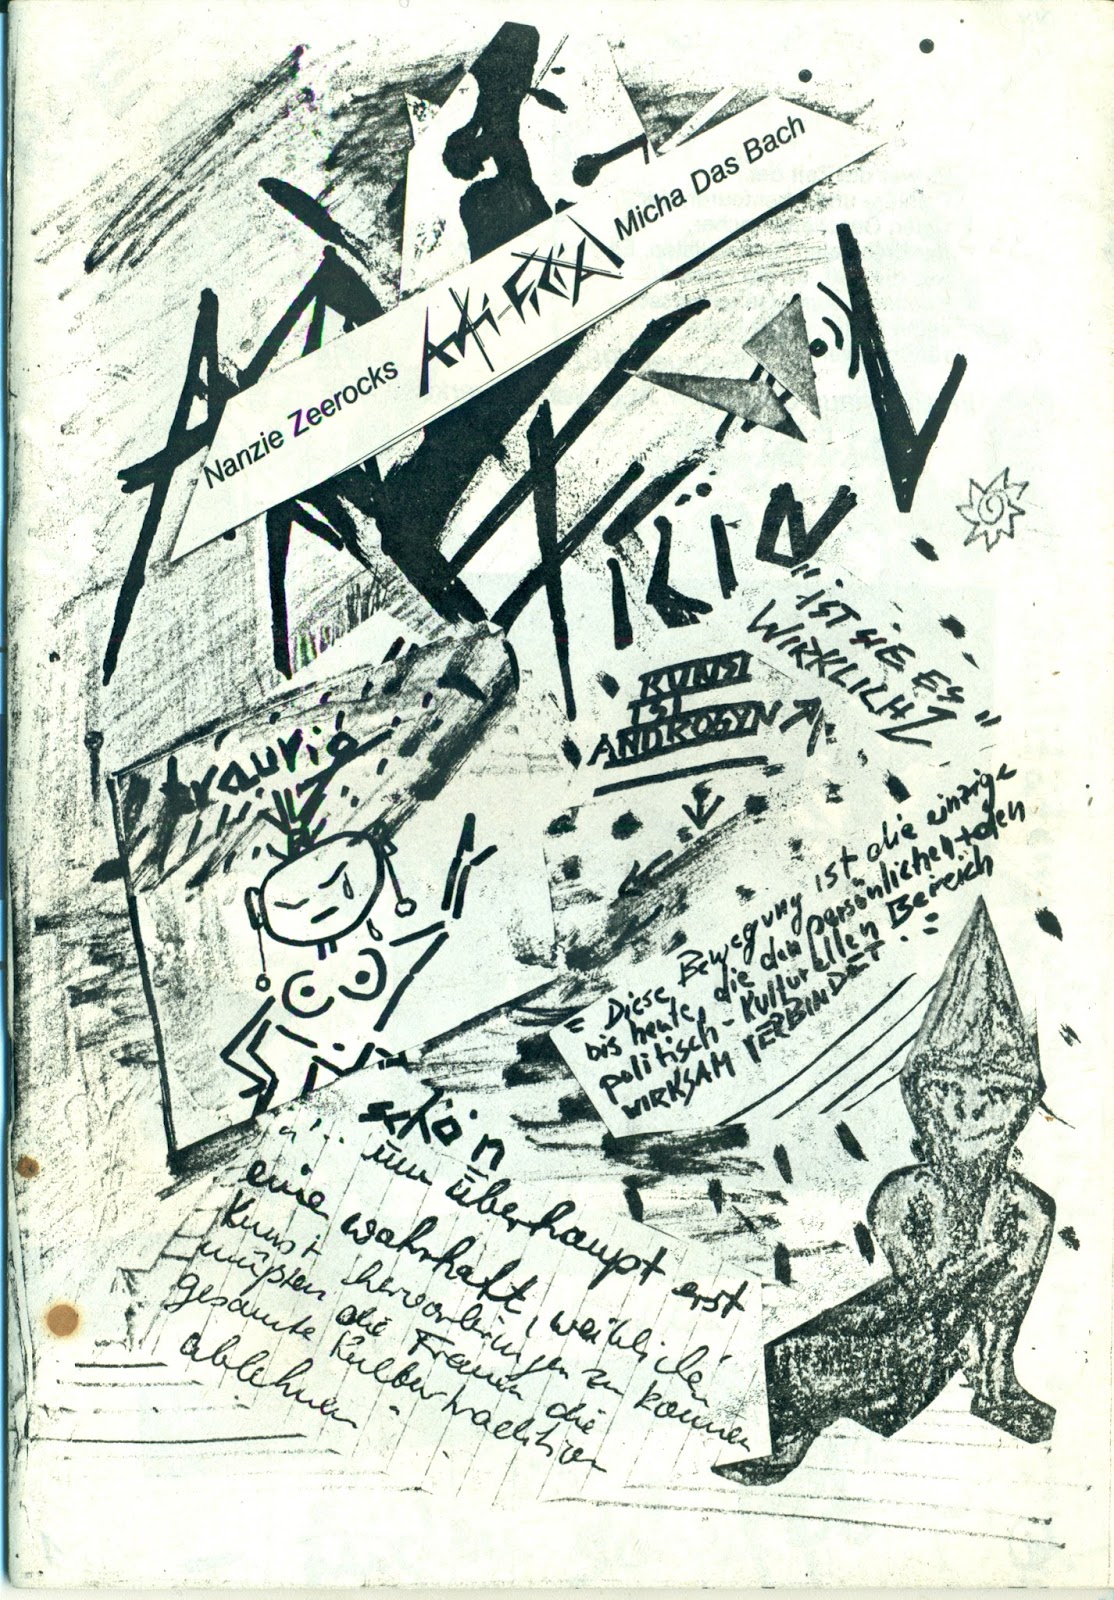 Micha Das Bach
Anti-
Nanzie Zeerocks
"ist sie es
wirklich"
KUNST
IST
ANDROGYN
traurig
"Diese Bewegung ist die einzige
bis heute, die den persönlichen +
politisch-kulturellen Bereich
WIRKSAM VERBINDET."
schön
um überhaupt erst
eine wahrhaft weibliche
Kunst hervorbringen zu können
müßten die Frauen die
gesamte Kulturtradition
ablehnen